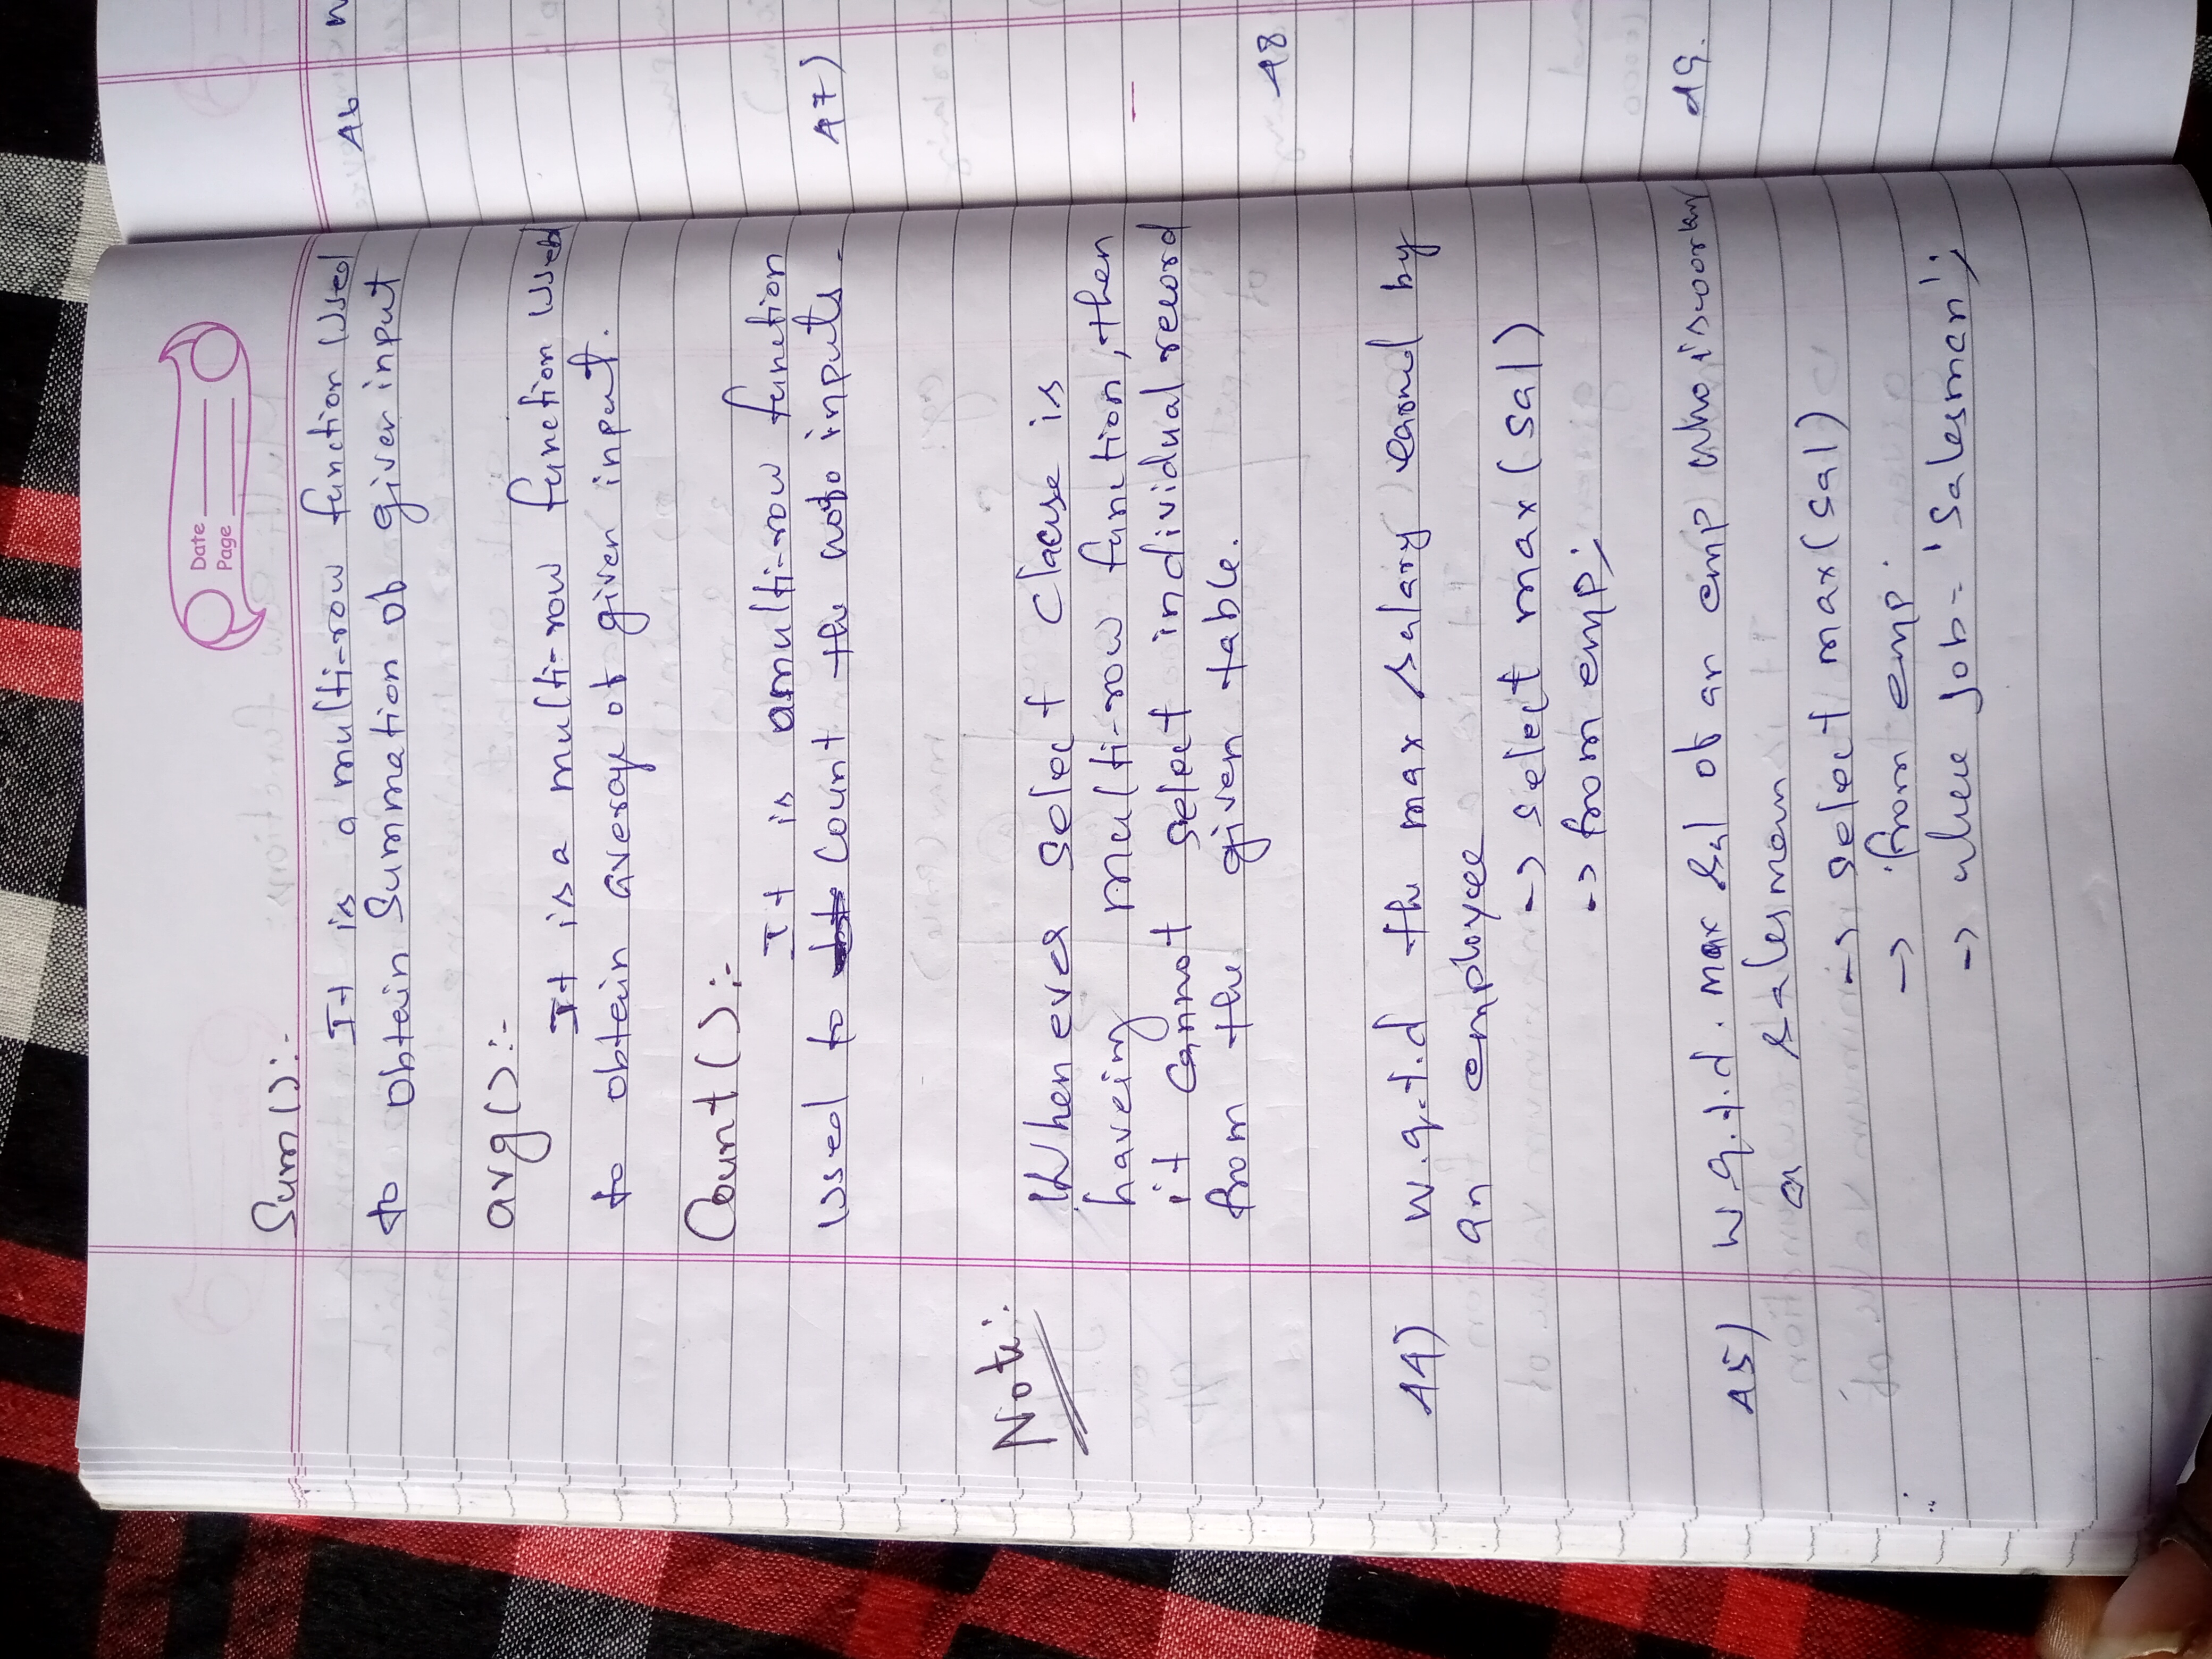 Date
Page
Sum():-
It is a multi-row function Used
to obtain Summation of given input
avg():-
It is a multi-row function Used
to obtain average of given input.
Count():-
It is amulti-row function
Used to Count the no inputs.
Note:
When ever Select Clause is
haveing multi-row function, then
it cannot select individual record
from the given table.
14) W.q.t.d the max salary earned by
an employee
-> select max(sal)
-> from emp;
15) W.q.t.d. max sal of an emp who is
a salesman
-> select max(sal)
-> from emp
-> where job= 'Salesman';
16
17)
18
19.